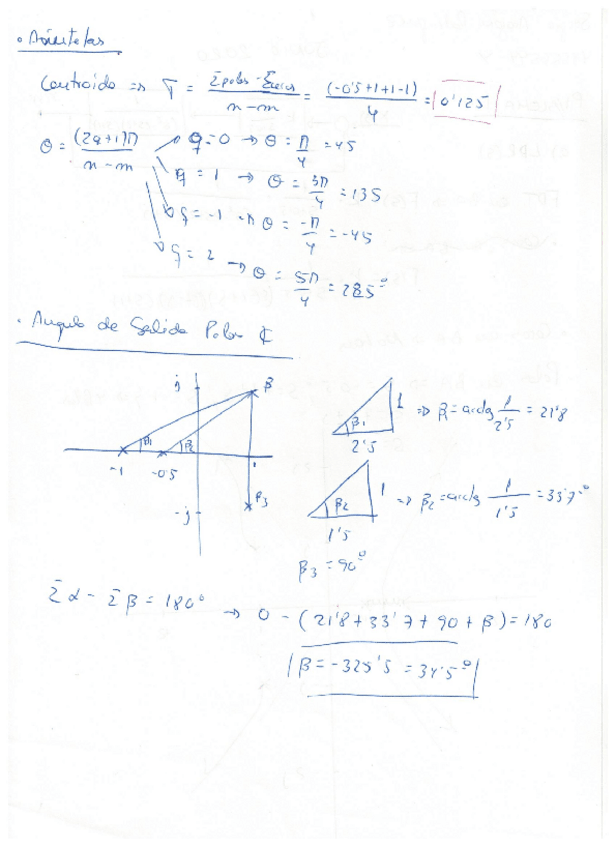 · Asíntotas
Centroide => σ = Σpolos - Σceros / n-m = (-0'5+1+1-1) / 4 = 0'125
θ = (2q+1)π / n-m → q=0 → θ = π/4 = 45
q = 1 → θ = 3π/4 = 135
q = -1 → θ = -π/4 = -45
q = 2 → θ = 5π/4 = 225°
· Angulo de Salida Polos ₵
j β
β1 β2
-1 -0'5 1
-j β3
β1 1 2'5 => β1 = arctg 1/2'5 = 21'8
β2 1 1'5 => β2 = arctg 1/1'5 = 33'7°
β3 = 90°
Σα - Σβ = 180° → 0 - (21'8 + 33'7 + 90 + β) = 180
β = -325'5 = 34'5°